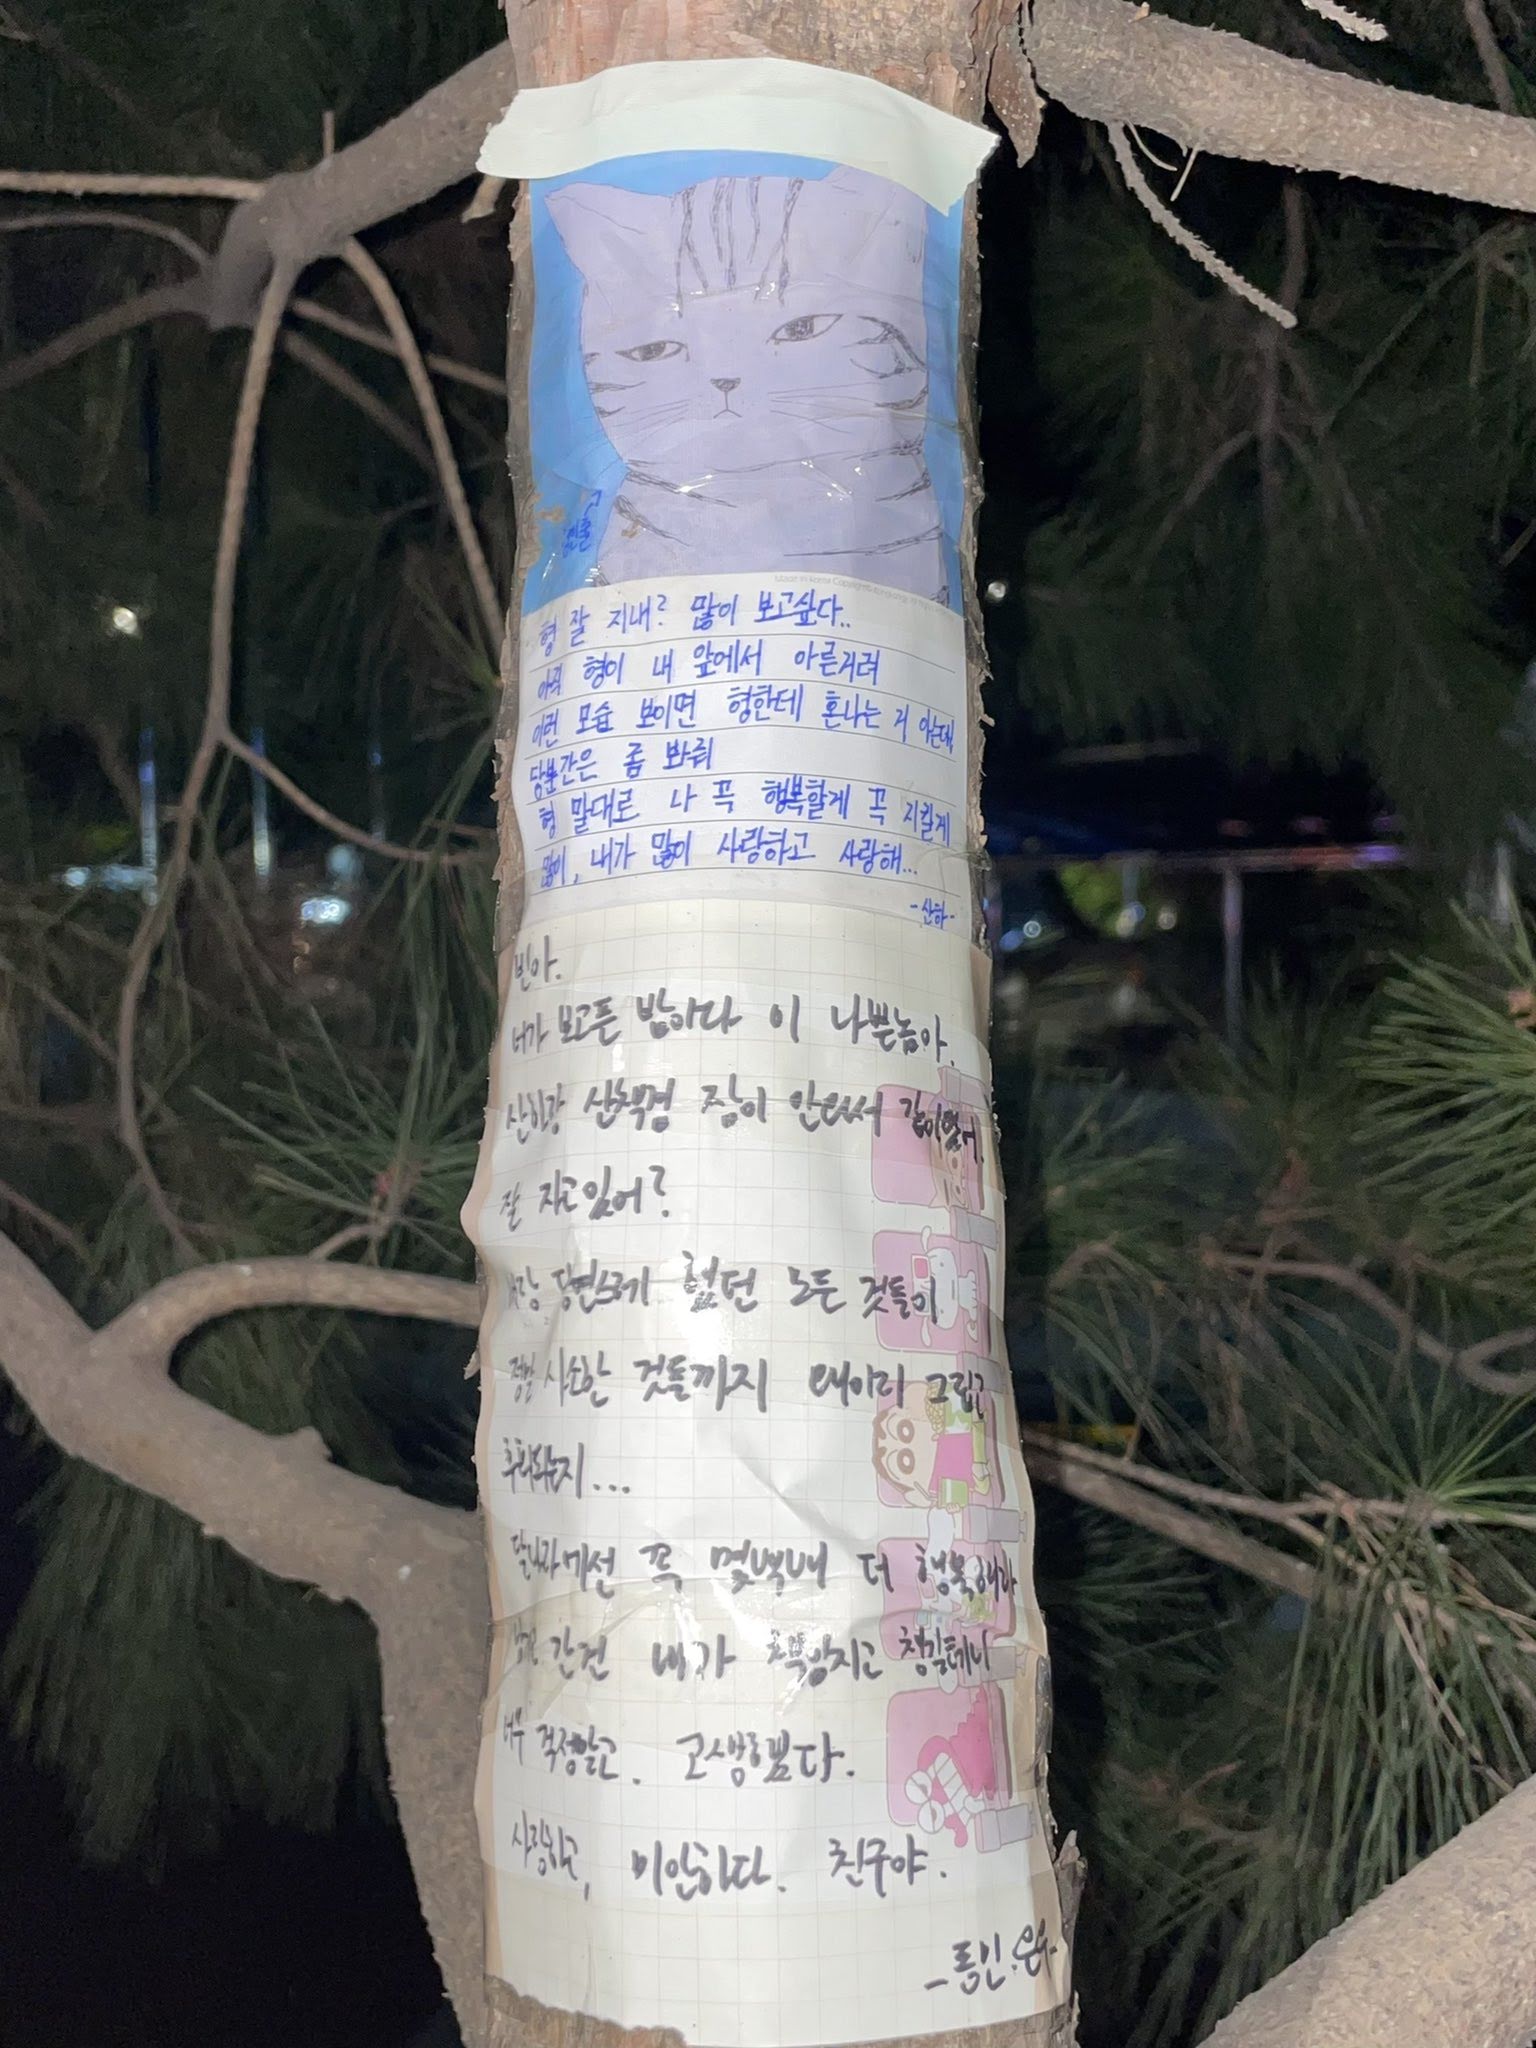 Made in Korea Copyright
형 잘 지내? 많이 보고싶다..
아직 형이 내 앞에서 아른거려
이런 모습 보이면 형한테 혼나는 거 아는데
당분간은 좀 봐줘
형 말대로 나 꼭 행복할게 꼭 지킬게
많이, 내가 많이 사랑하고 사랑해...
-산하-
빈아.
너가 보고픈 밤이다 이 나쁜놈아.
산하랑 산책겸 잠이 안와서 같이왔어.
잘 자고있어?
너랑 당연스레 했던 모든 것들이
정말 사소한 것들까지 왜이리 그립고
후회되는지...
달나라에선 꼭 몇백배 더 행복해라
남은 간건 내가 책임지고 챙길테니
너무 걱정말고. 고생했다.
사랑하고, 미안하다. 친구야.